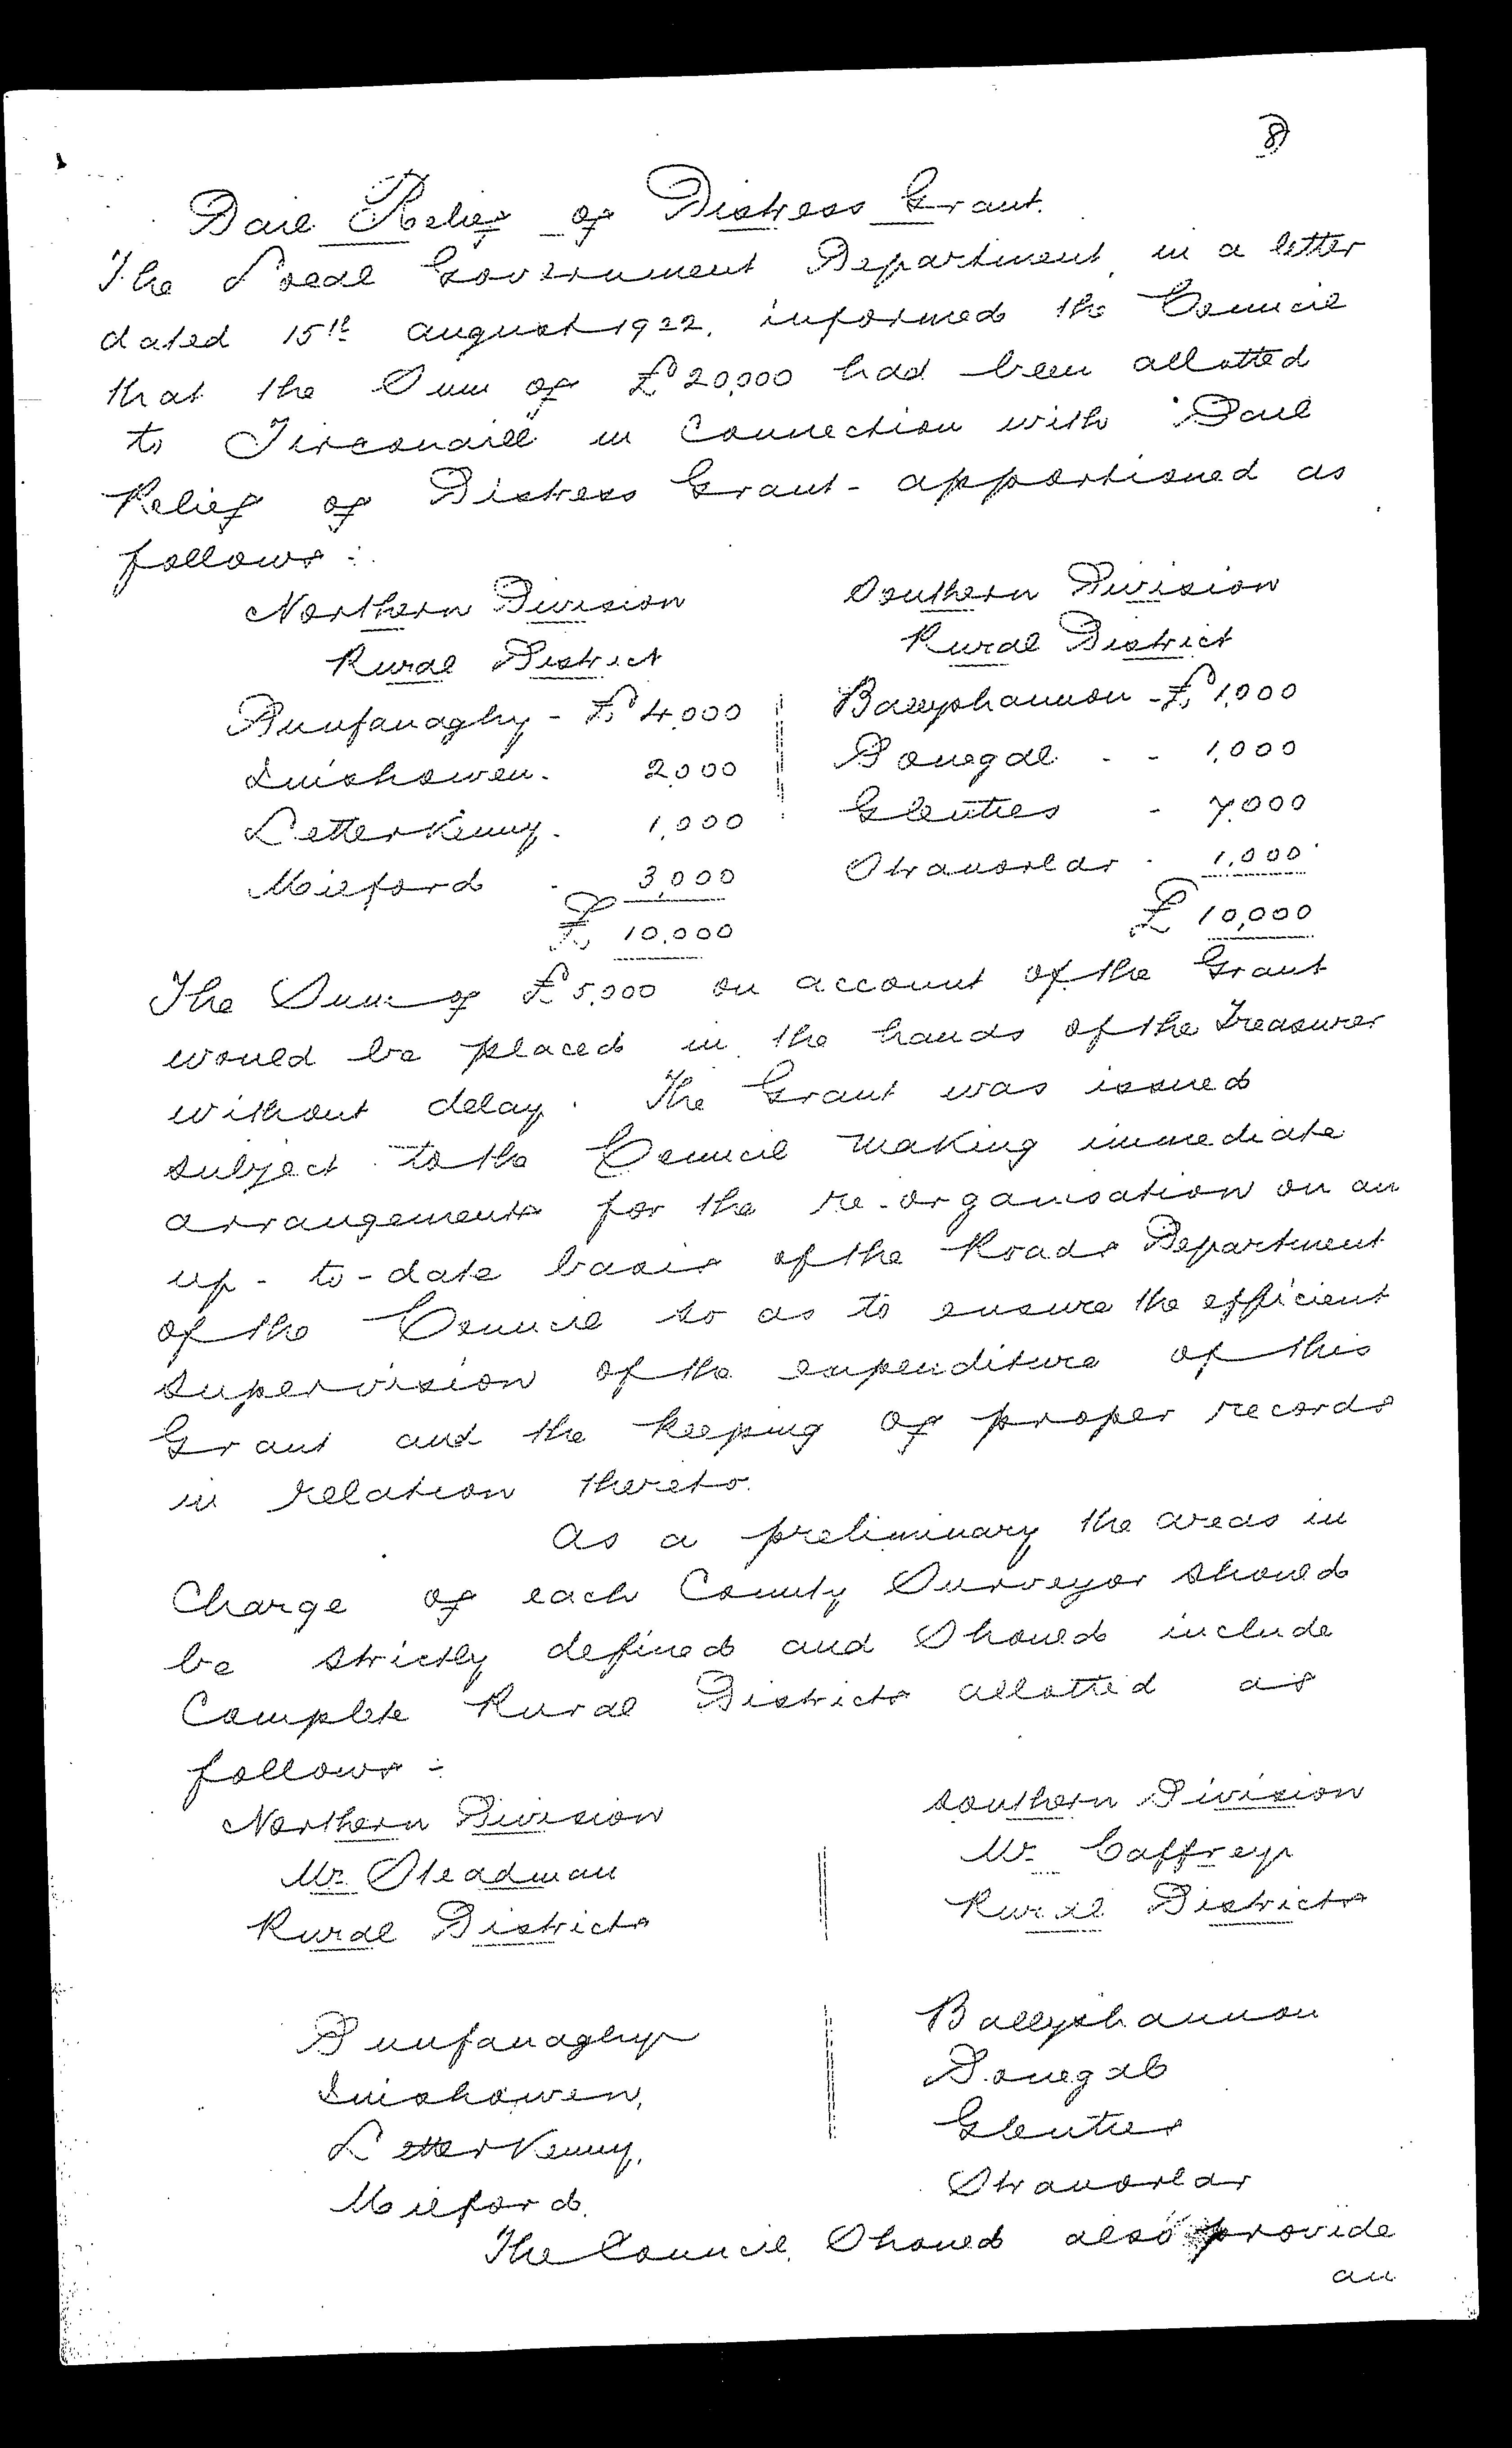 8)
Dail Relief of Distress Grant.
The Local Government Department in a letter
dated 15th august 1922, informed the Council
that the Sum of £20,000 had been allotted
to Tirconaill in Connection with Dail
Relief of Distress Grant - apportioned as
follows :-
Northern Division Southern Division
Rural District Rural District
Dunfanaghy - £4,000 Ballyshannon - £1,000
Inishowen. 2,000 Donegal - - 1,000
Letterkenny. 1,000 Glenties - 7,000
Milford - 3,000 Stranorlar - 1,000
£ 10,000 £ 10,000
The Sum of £5,000 on account of the Grant
would be placed in the hands of the Treasurer
without delay. The Grant was issued
subject to the Council making immediate
arrangements for the re-organisation on an
up-to-date basis of the Roads Department
of the Council so as to ensure the efficient
supervision of the expenditure of this
Grant and the keeping of proper records
in relation thereto.
As a preliminary the areas in
Charge of each County Surveyor should
be strictly defined and Should include
Complete Rural Districts allotted as
follows :-
Northern Division Southern Division
Mr. Steadman Mr. Caffrey
Rural Districts Rural Districts
Dunfanaghy Ballyshannon
Inishowen, Donegal
Letterkenny, Glenties
Milford. Stranorlar
The Council Should also provide
an